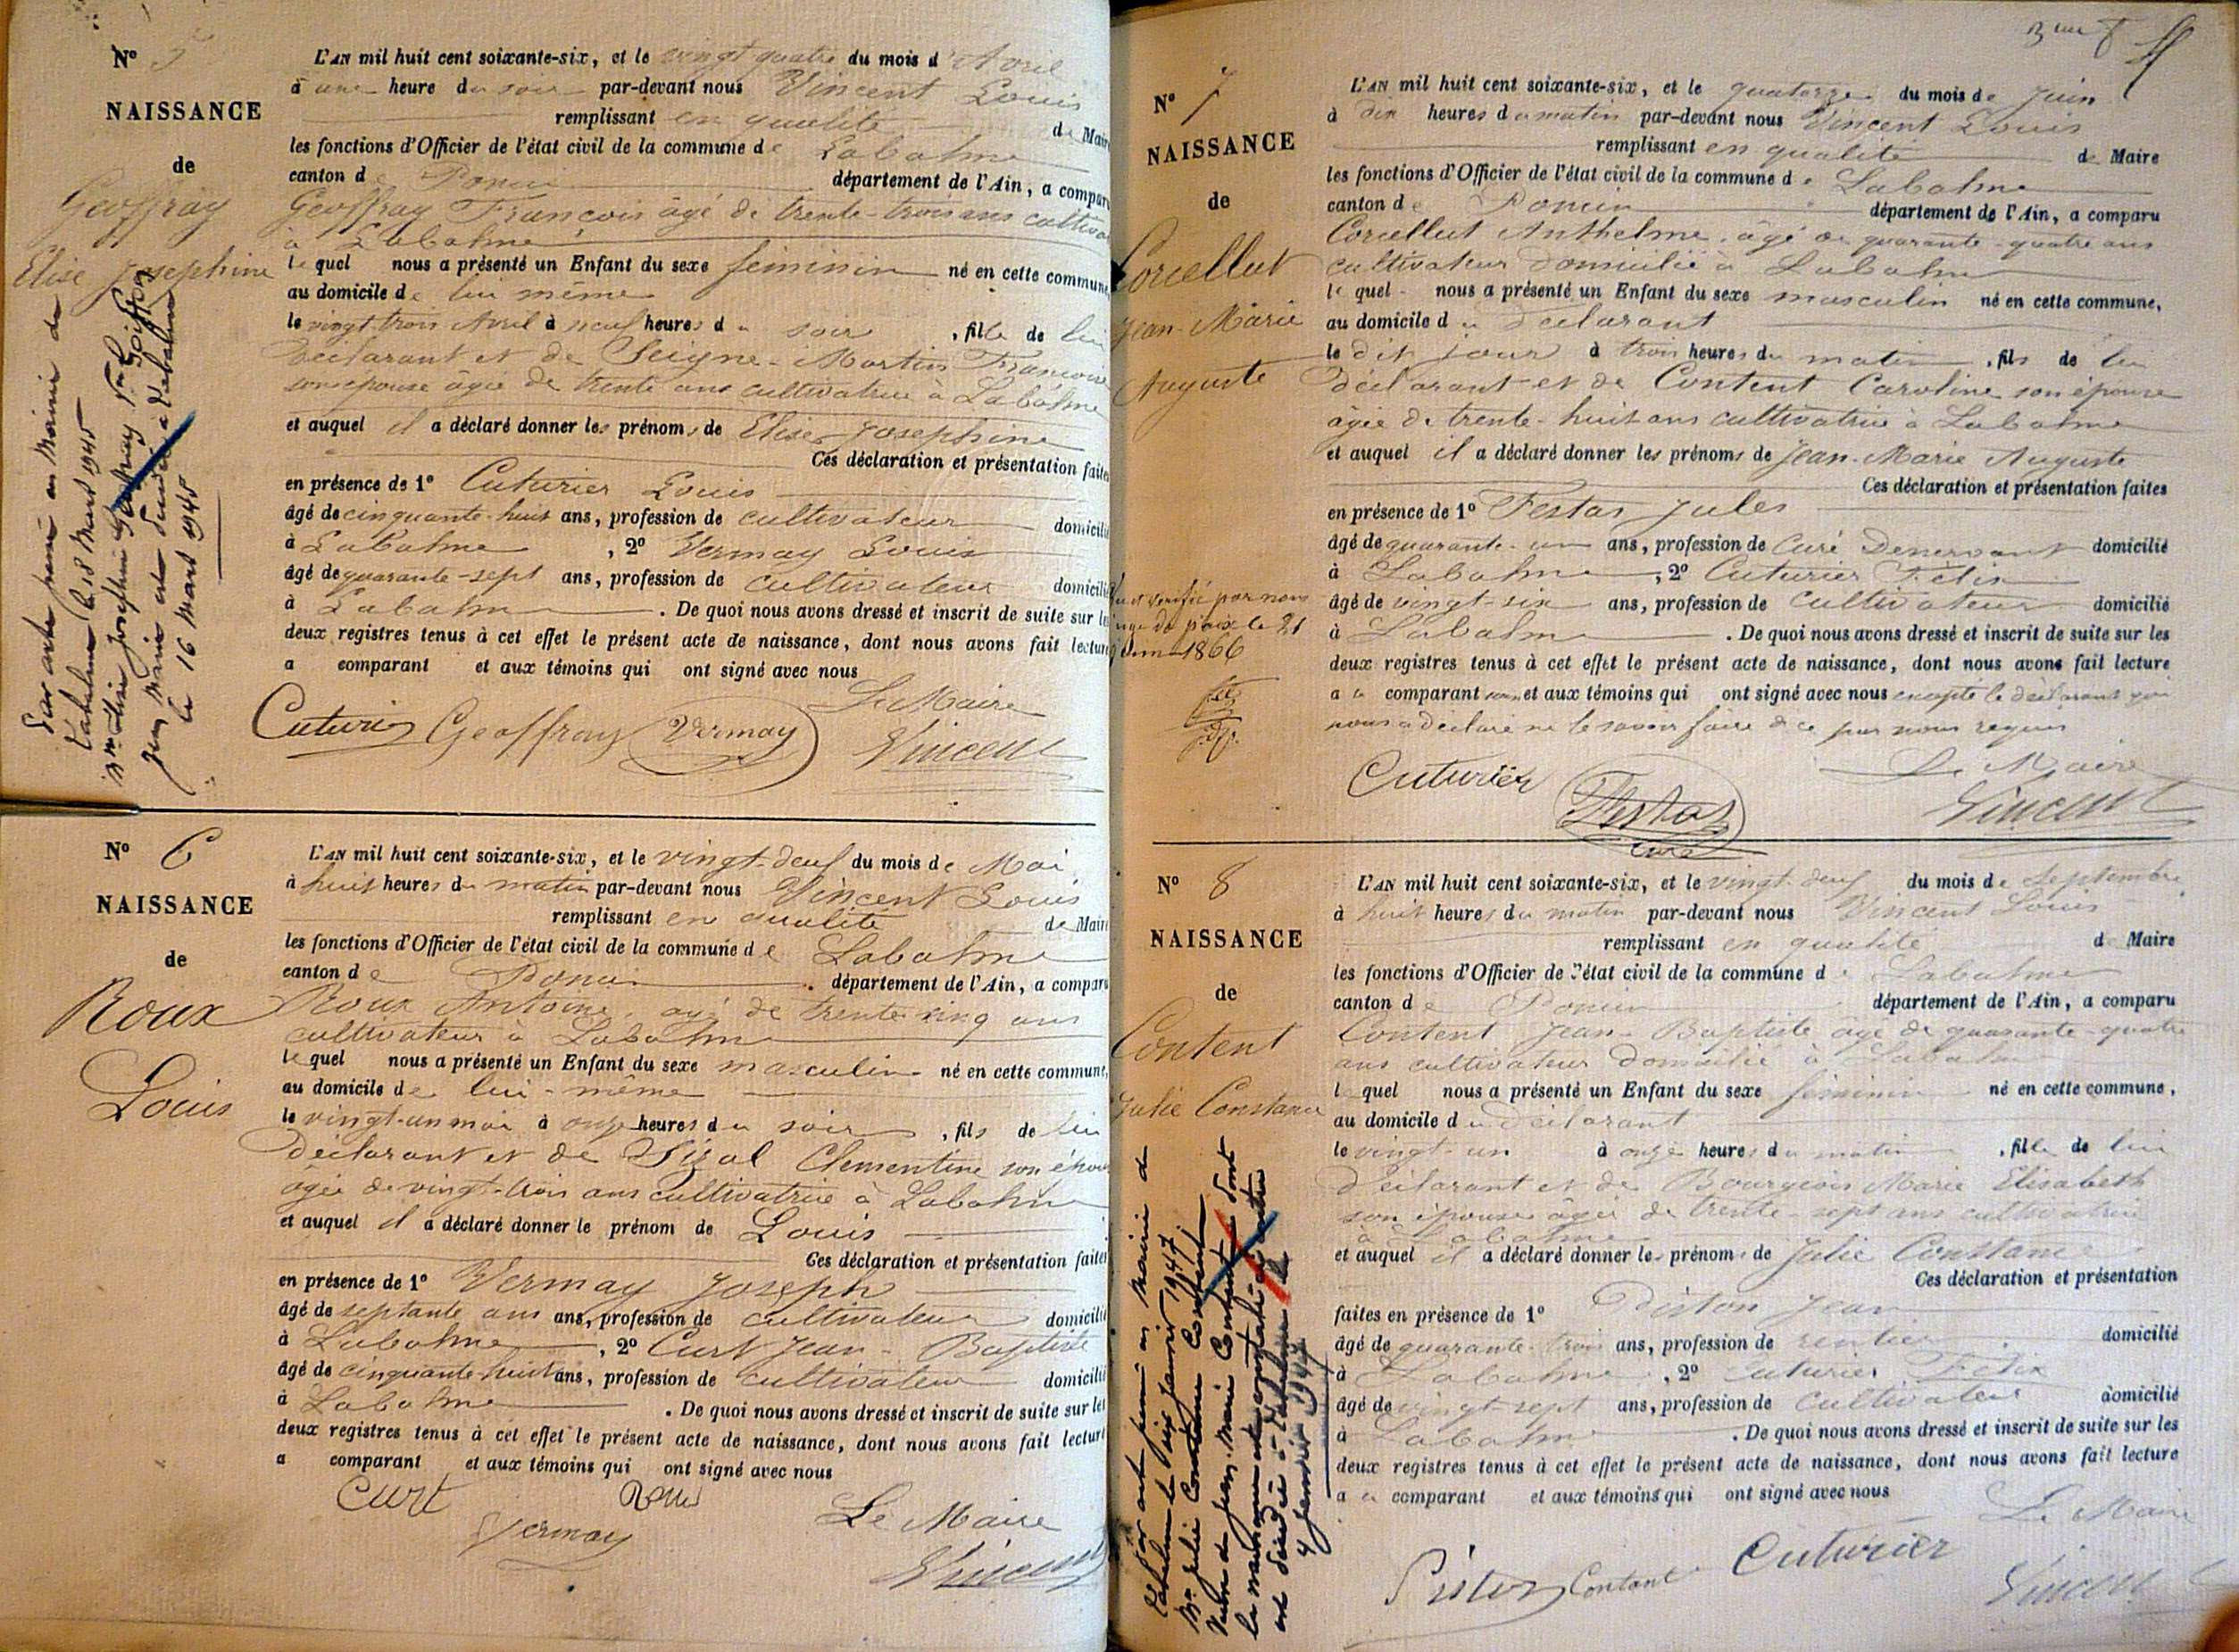 N° 5
NAISSANCE
de
Geoffray
Elise Josephine
L'AN mil huit cent soixante-six, et le vingt quatre du mois d'Avril
à une heure du soir par-devant nous Vincent Louis
remplissant en qualité de Maire
les fonctions d'Officier de l'état civil de la commune de Labalme
canton de Poncin département de l'Ain, a comparu
Geoffray François âgé de trente-trois ans cultivateur
à Labalme
lequel nous a présenté un Enfant du sexe féminin né en cette commune,
au domicile de lui même
le vingt trois Avril à neuf heures du soir, fille de lui
déclarant et de Seigne-Martin Françoise
son épouse âgée de trente ans cultivatrice à Labalme
et auquel il a déclaré donner les prénoms de Elise Josephine
Ces déclaration et présentation faites
en présence de 1° Cuturier Louis
âgé de cinquante-huit ans, profession de cultivateur domicilié
à Labalme, 2° Vermay Louis
âgé de quarante-sept ans, profession de cultivateur domicilié
à Labalme. De quoi nous avons dressé et inscrit de suite sur les
deux registres tenus à cet effet le présent acte de naissance, dont nous avons fait lecture
a comparant et aux témoins qui ont signé avec nous
Le Maire
Cuturier Geoffray Vermay Vincent
Par acte passé en Mairie de
Labalme le 18 Mars 1945
Mme Elise Josephine Geoffray
Jean Marie est décédée à Labalme
le 16 Mars 1945
N° 6
NAISSANCE
de
Roux
Louis
L'AN mil huit cent soixante-six, et le vingt-deux du mois de Mai
à huit heures du matin par-devant nous Vincent Louis
remplissant en qualité de Maire
les fonctions d'Officier de l'état civil de la commune de Labalme
canton de Poncin département de l'Ain, a comparu
Roux Antoine, âgé de trente cinq ans
cultivateur à Labalme
lequel nous a présenté un Enfant du sexe masculin né en cette commune,
au domicile de lui-même
le vingt-un mai à onze heures du soir, fils de lui
déclarant et de Sizal Clementine son épouse
âgée de vingt-trois ans cultivatrice à Labalme
et auquel il a déclaré donner le prénom de Louis
Ces déclaration et présentation faites
en présence de 1° Vermay Joseph
âgé de septante ans ans, profession de cultivateur domicilié
à Labalme, 2° Curt Jean-Baptiste
âgé de cinquante-huit ans, profession de cultivateur domicilié
à Labalme. De quoi nous avons dressé et inscrit de suite sur les
deux registres tenus à cet effet le présent acte de naissance, dont nous avons fait lecture
a comparant et aux témoins qui ont signé avec nous
Curt Roux Le Maire
Vermay Vincent
N° 7
NAISSANCE
de
Corcellut
Jean-Marie
Auguste
L'AN mil huit cent soixante-six, et le quatorze du mois de Juin
à dix heures du matin par-devant nous Vincent Louis
remplissant en qualité de Maire
les fonctions d'Officier de l'état civil de la commune de Labalme
canton de Poncin département de l'Ain, a comparu
Corcellut Anthelme, âgé de quarante-quatre ans
cultivateur domicilié à Labalme
lequel nous a présenté un Enfant du sexe masculin né en cette commune,
au domicile du déclarant
le dit jour à trois heures du matin, fils de lui
déclarant et de Content Caroline son épouse
âgée de trente-huit ans cultivatrice à Labalme
et auquel il a déclaré donner les prénoms de Jean-Marie Auguste
Ces déclaration et présentation faites
en présence de 1° Festas Jules
âgé de quarante-un ans, profession de Curé Desservant domicilié
à Labalme, 2° Cuturier Félix
âgé de vingt-six ans, profession de cultivateur domicilié
à Labalme. De quoi nous avons dressé et inscrit de suite sur les
deux registres tenus à cet effet le présent acte de naissance, dont nous avons fait lecture
a comparant et aux témoins qui ont signé avec nous excepté le déclarant qui
nous a déclaré ne le savoir faire de ce par nous requis
Vu et vérifié par nous
juge de paix le 21
Juin 1866
Cuturier Festas Le Maire
curé Vincent
N° 8
NAISSANCE
de
Content
Julie Constance
L'AN mil huit cent soixante-six, et le vingt-deux du mois de Septembre
à huit heures du matin par-devant nous Vincent Louis
remplissant en qualité de Maire
les fonctions d'Officier de l'état civil de la commune de Labalme
canton de Poncin département de l'Ain, a comparu
Content Jean-Baptiste âgé de quarante-quatre
ans cultivateur domicilié à Labalme
lequel nous a présenté un Enfant du sexe féminin né en cette commune,
au domicile du déclarant
le vingt-un à onze heures du matin, fille de lui
déclarant et de Bourgeois Marie Elisabeth
son épouse âgée de trente-sept ans cultivatrice
à Labalme
et auquel il a déclaré donner les prénoms de Julie Constance
Ces déclaration et présentation
faites en présence de 1° Piston Jean
âgé de quarante-trois ans, profession de rentier domicilié
à Labalme, 2° Cuturier Félix
âgé de vingt sept ans, profession de cultivateur domicilié
à Labalme. De quoi nous avons dressé et inscrit de suite sur les
deux registres tenus à cet effet le présent acte de naissance, dont nous avons fait lecture
a comparant et aux témoins qui ont signé avec nous
Le Maire
Piston Content Cuturier Vincent
Par acte passé en Mairie de
Labalme le six Janvier 1947
Mme Julie Constance Content
Veuve de Jean Marie Content dont
est décédée à Labalme le
4 Janvier 1947